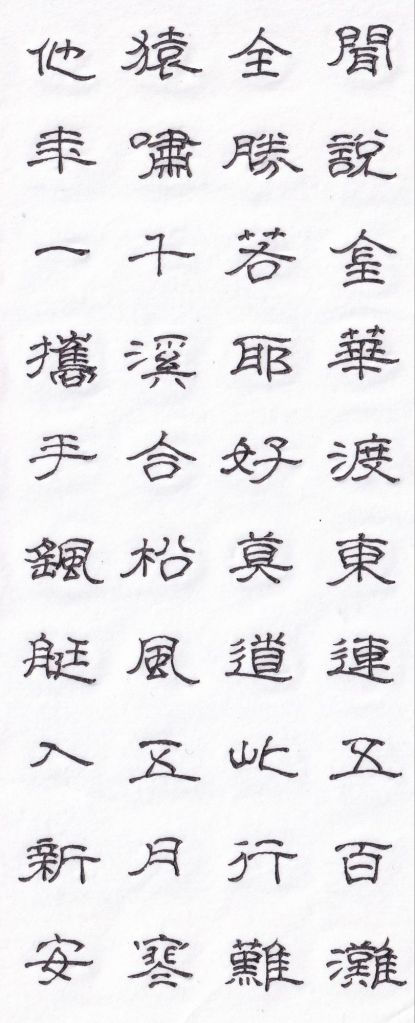 聞說金華渡東連五百灘
全勝若耶好莫道此行難
猿嘯千溪合松風五月寒
他年一攜手颻艇入新安